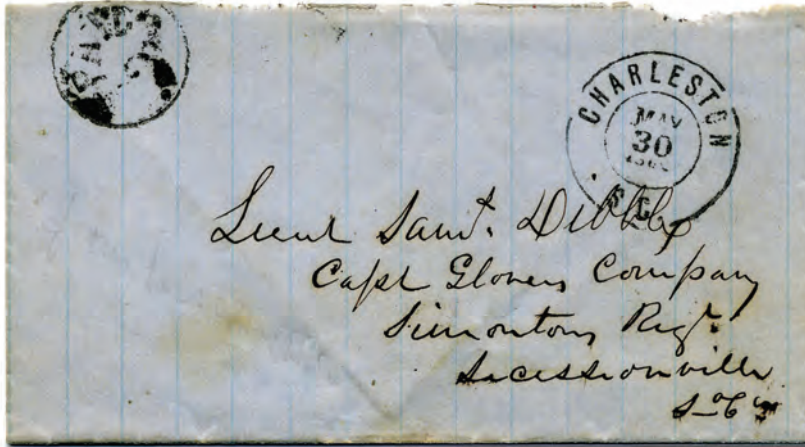 PAID
CHARLESTON
MAY
30
S.C.
Lieut Saml. Dibble
Capt Glovers Company
Simontons Regt.
Secessionville
So Ca